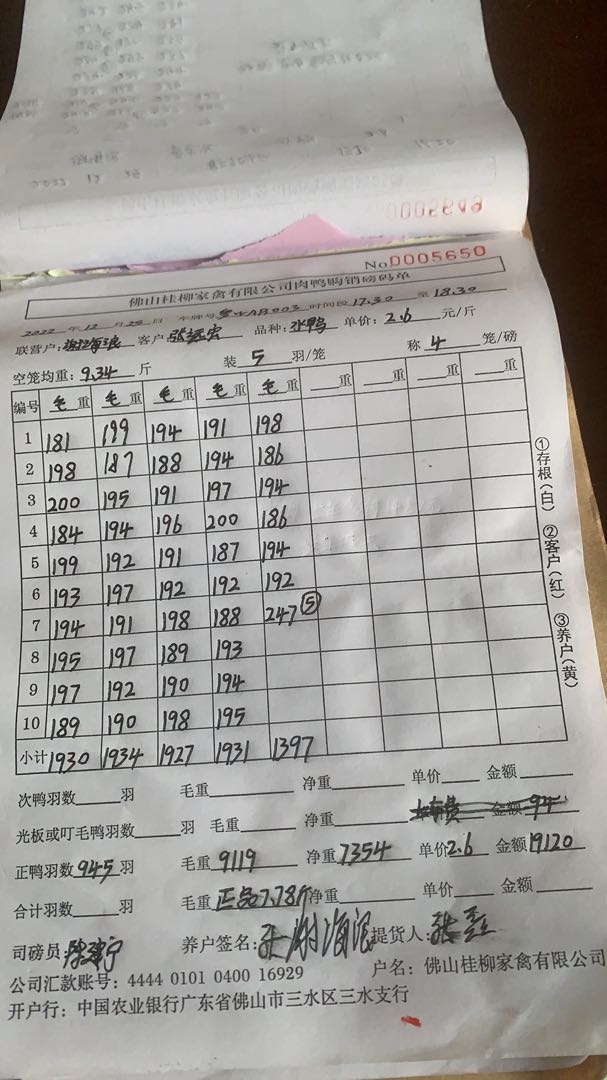 0005649
No 0005650
佛山桂柳家禽有限公司肉鸭购销磅码单
2022 年 12 月 25 日 车牌号 A8003 时间段 17.30 至 18.30
联营户: 谢海浪 客户 张远宏 品种: 张鸭 单价: 2.6 元/斤
空笼均重: 9.34 斤 装 5 羽/笼 称 4 笼/磅
编号 毛重 毛重 毛重 毛重 毛重 重 重 重 重
1 181 199 194 191 198
2 198 187 188 194 186
3 200 195 191 197 194
4 184 194 196 200 186
5 199 192 191 187 194
6 193 197 192 192 192
7 194 191 198 188 247 ⑤
8 195 197 189 193
9 197 192 190 194
10 189 190 198 195
小计 1930 1934 1927 1931 1397
①存根(白) ②客户(红) ③养户(黄)
次鸭羽数 羽 毛重 净重 单价 金额
光板或叮毛鸭羽数 羽 毛重 净重 金额 94
正鸭羽数 945 羽 毛重 9119 净重 7354 单价 2.6 金额 19120
合计羽数 羽 毛重 正品7.78斤 净重 单价 金额
司磅员: 养户签名: 提货人: 张
公司汇款账号: 4444 0101 0400 16929 户名: 佛山桂柳家禽有限公司
开户行: 中国农业银行广东省佛山市三水区三水支行